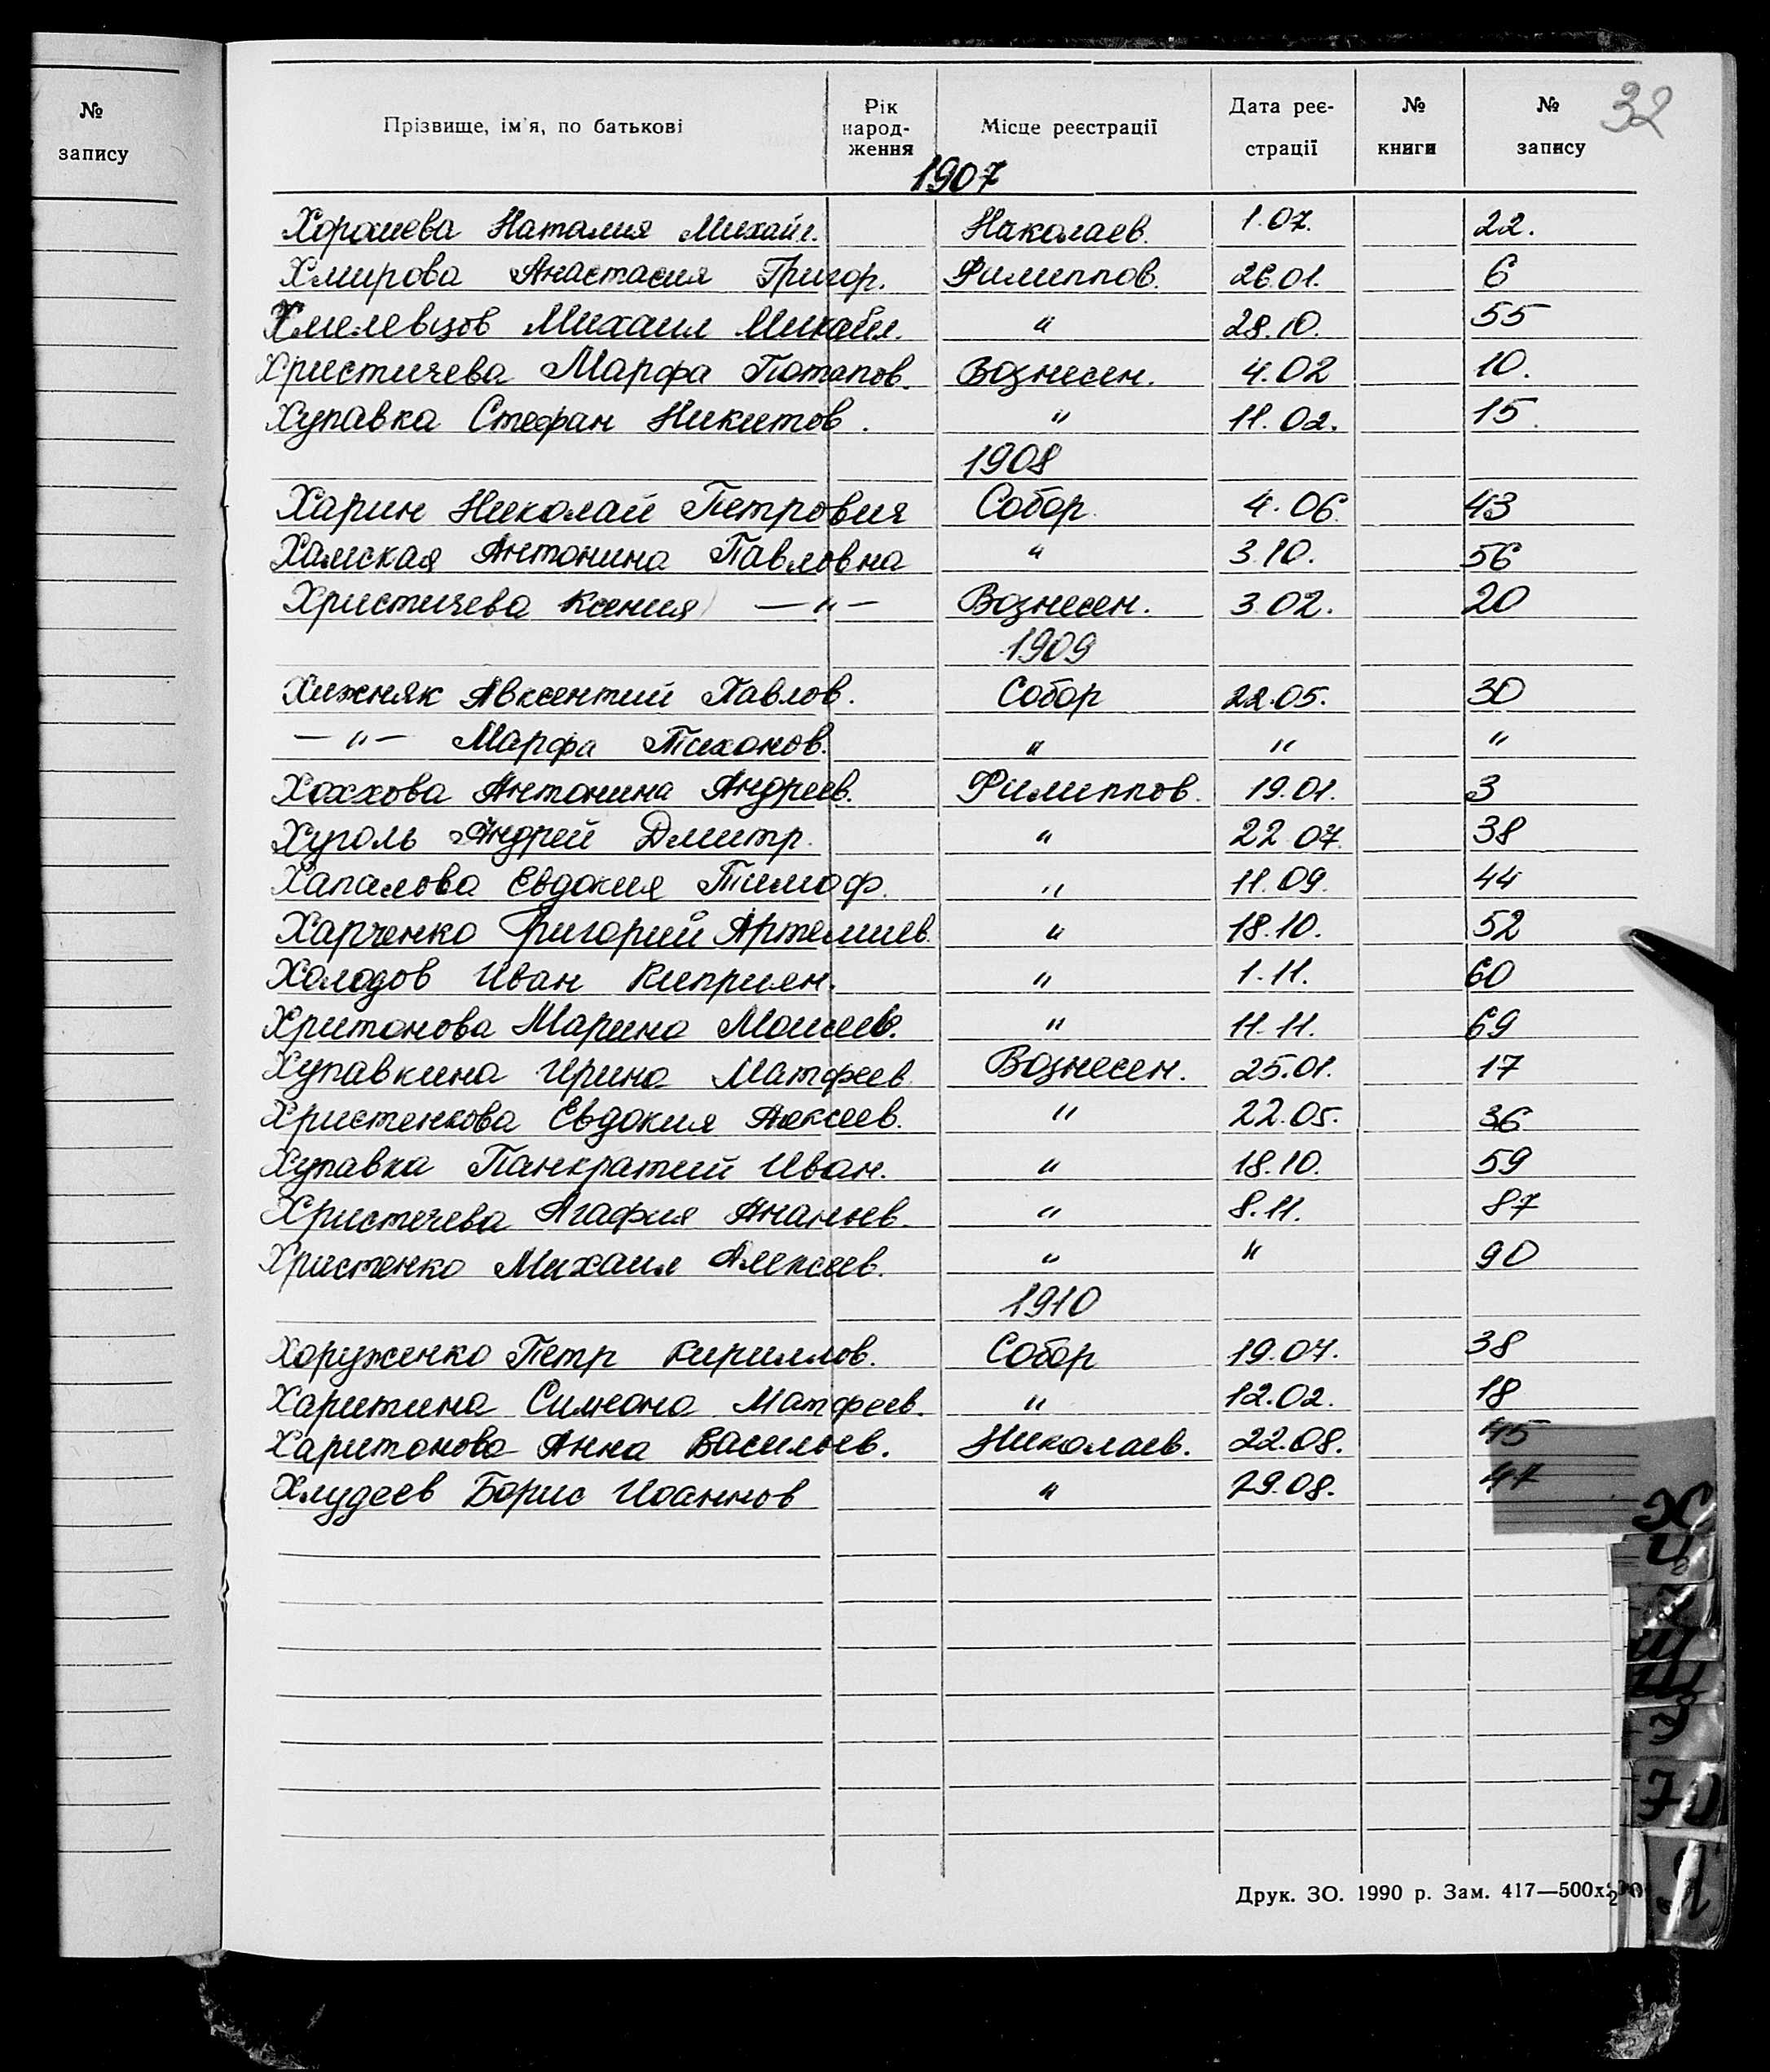 №
запису
Прізвище, ім'я, по батькові Рік народ-ження Місце реєстрації Дата реє-страції № книги № запису 32
1907
Хорошева Наталия Михайл. Николаев. 1.07. 22.
Хмирова Анастасия Григор. Филиппов. 26.01. 6
Хмелевцов Михаил Михайл. " 28.10. 55
Христичева Марфа Потапов. Вознесен. 4.02 10.
Хупавка Стефан Никитов. " 11.02. 15.
1908
Харин Николай Петрович Собор. 4.06. 43
Хамская Антонина Павловна " 3.10. 56
Христичева Ксения — " — Вознесен. 3.02. 20
1909
Хижняк Авксентий Павлов. Собор 22.05. 30
— " — Марфа Тихонов. " " "
Хоххова Антонина Андреев. Филиппов. 19.01. 3
Хуголь Андрей Дмитр. " 22.07. 38
Хапалова Евдокия Тимоф. " 11.09. 44
Харченко Григорий Артемиев. " 18.10. 52
Холодов Иван Киприян. " 1.11. 60
Хритонова Марина Моисеев. " 11.11. 69
Хупавкина Ирина Матфеев. Вознесен. 25.01. 17
Христенкова Евдокия Алексеев. " 22.05. 36
Хупавка Панкратий Иван. " 18.10. 59
Христечева Агафия Ананьев. " 8.11. 87
Христенко Михаил Алексеев. " " 90
1910
Хоруженко Петр Кириллов. Собор 19.07. 38
Харитина Симеона Матфеев. " 12.02. 18
Харитонова Анна Васильев. Николаев. 22.08. 45
Хлудеев Борис Иоаннов " 29.08. 47
Х
Ц
Ш
Щ
Э
Ю
Я
Друк. ЗО. 1990 р. Зам. 417—500х